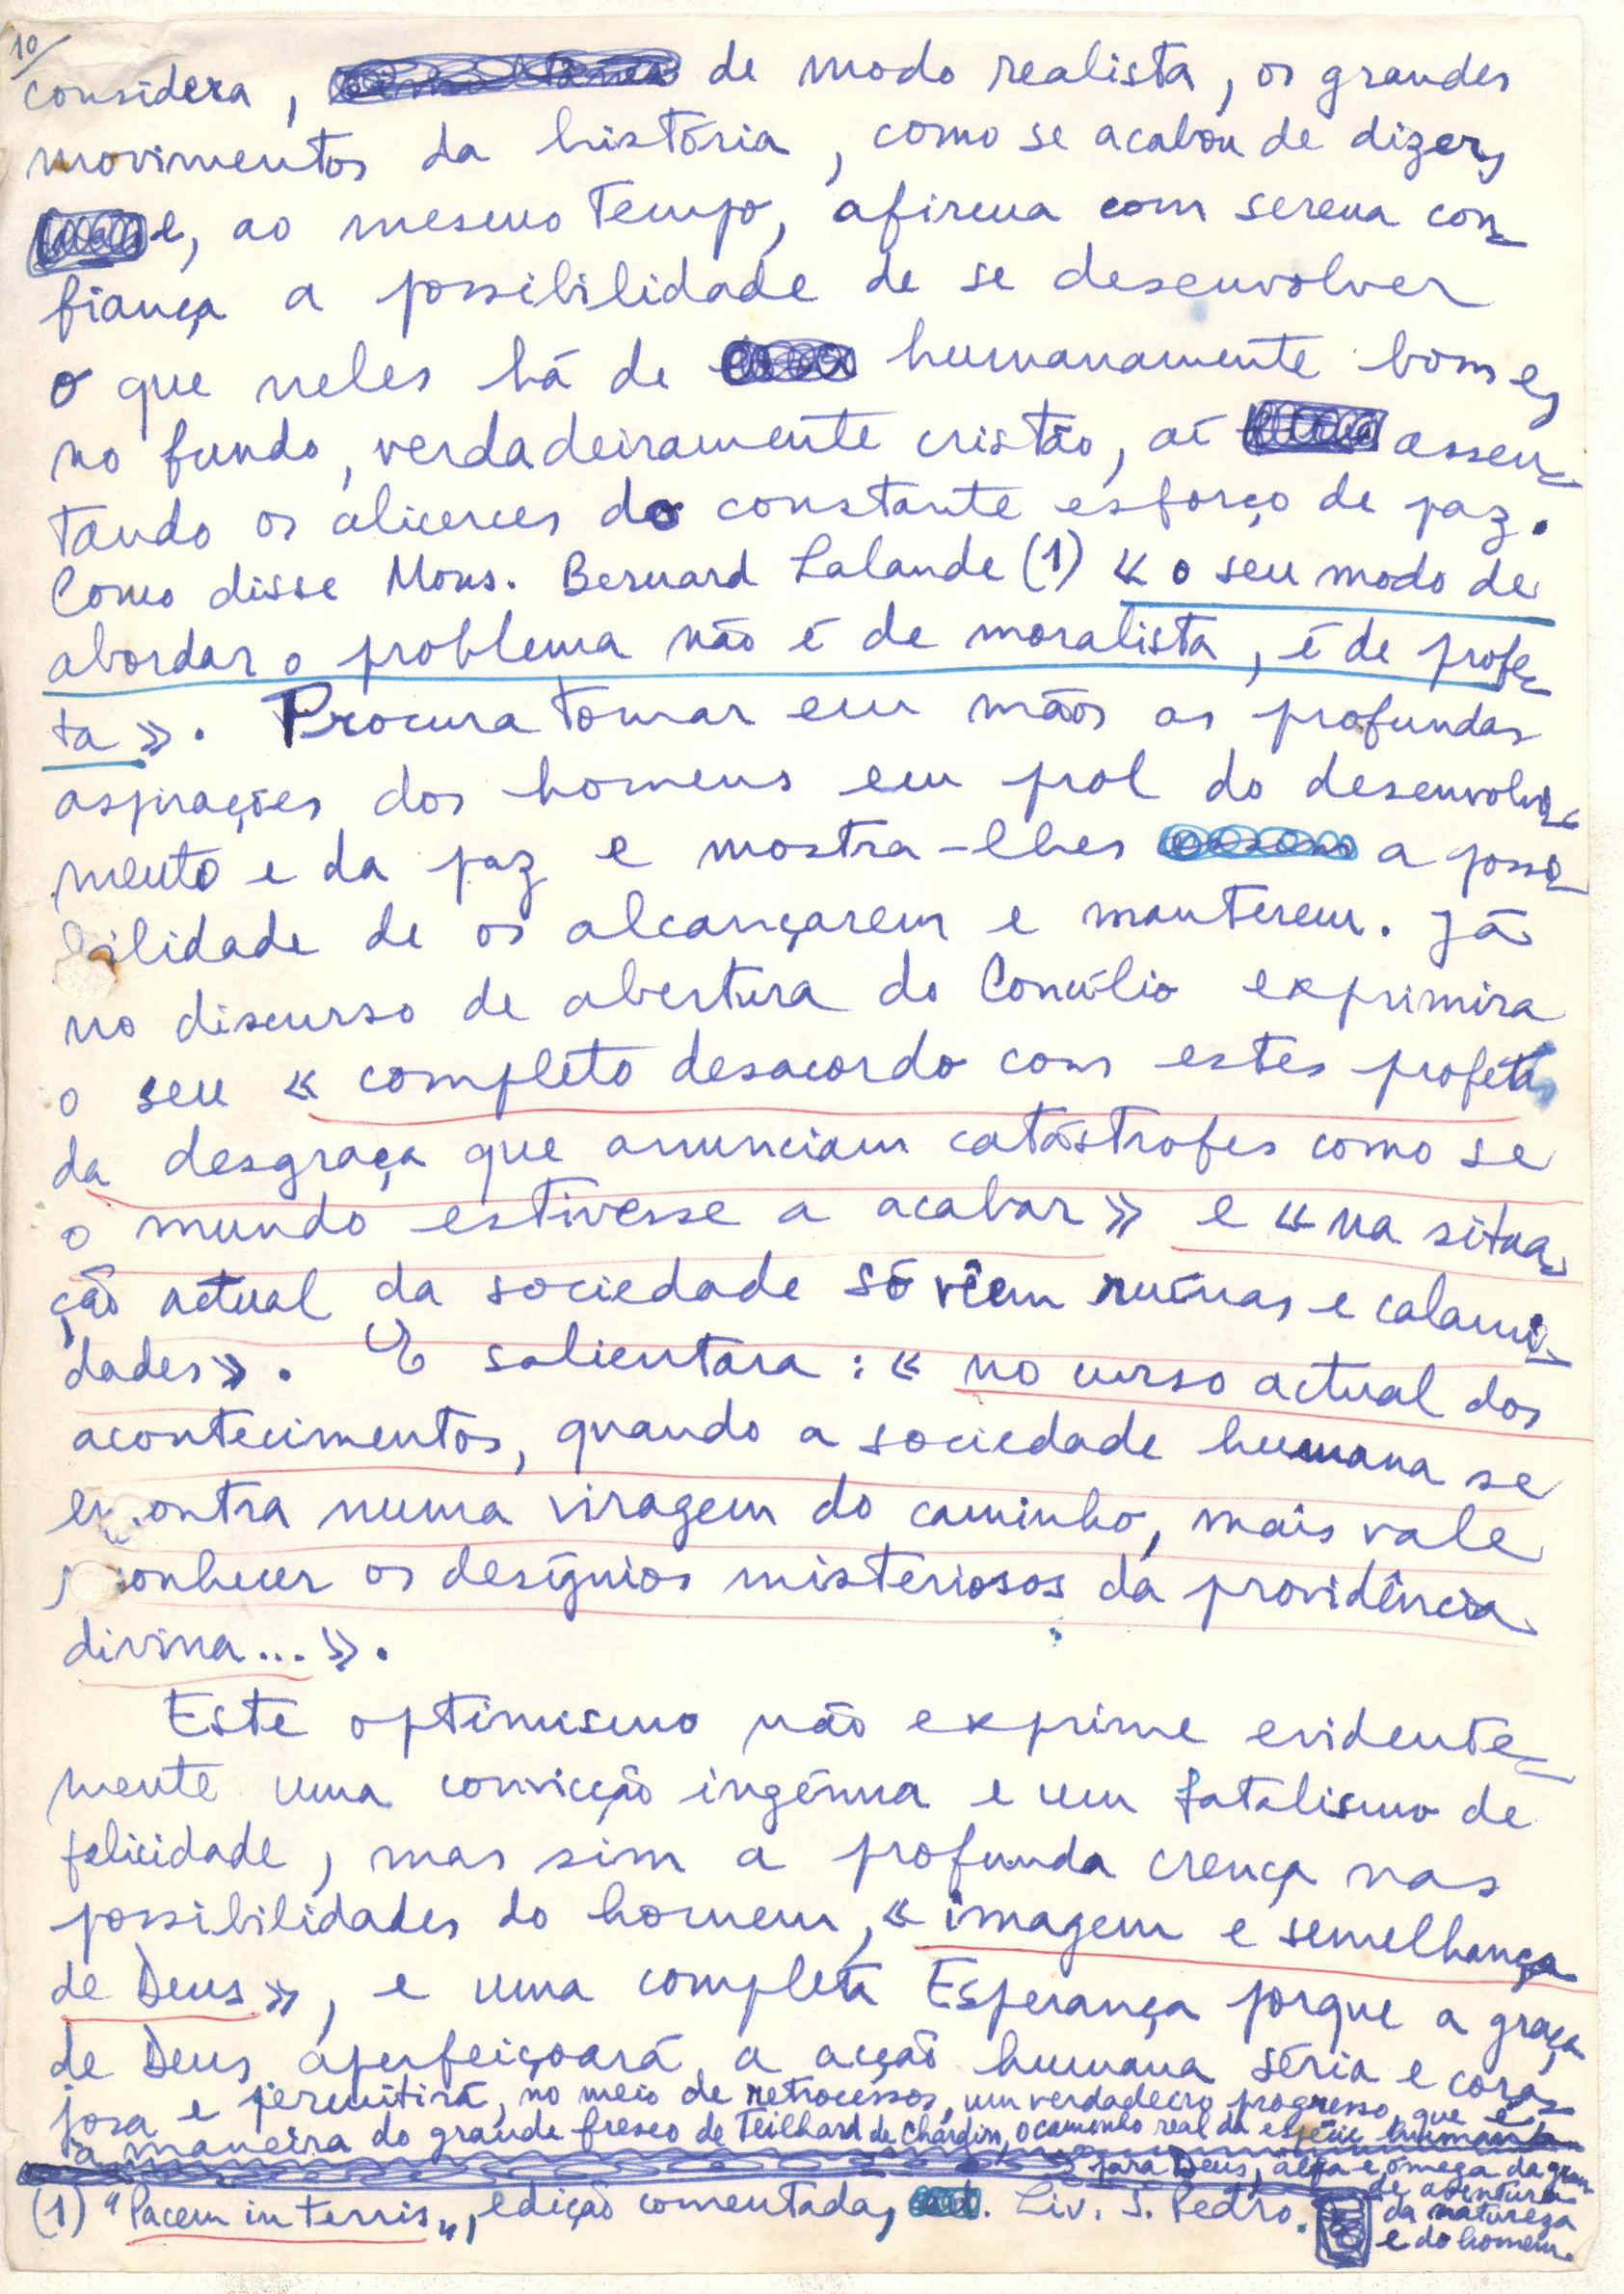 10/
considera, de modo realista, os grandes
movimentos da história, como se acabou de dizer,
e, ao mesmo tempo, afirma com serena con-
fiança a possibilidade de se desenvolver
o que neles há de humanamente bom e,
no fundo, verdadeiramente cristão, aí assen-
tando os alicerces do constante esforço de paz.
Como disse Mons. Bernard Lalande (1) « o seu modo de
abordar o problema não é de moralista, é de profe-
ta ». Procura tomar em mãos as profundas
aspirações dos homens em prol do desenvolvi-
mento e da paz e mostra-lhes a possi-
bilidade de os alcançarem e manterem. Já
no discurso de abertura do Concílio exprimira
o seu « completo desacordo com estes profetas
da desgraça que anunciam catástrofes como se
o mundo estivesse a acabar » e « na situa-
ção actual da sociedade só vêem ruínas e calami-
dades ». E salientara : « no curso actual dos
acontecimentos, quando a sociedade humana se
encontra numa viragem do caminho, mais vale
reconhecer os desígnios misteriosos da providência
divina... ».
Este optimismo não exprime evidente-
mente uma convicção ingénua e um fatalismo de
felicidade, mas sim a profunda crença nas
possibilidades do homem, « imagem e semelhança
de Deus », e uma completa Esperança porque a graça
de Deus aperfeiçoará a acção humana séria e cora-
josa e permitirá, no meio de retrocessos, um verdadeiro progresso, que é,
à maneira do grande fresco de Teilhard de Chardin, o caminho real da espécie humana
para Deus, alfa e ómega da gran-
de aventura
da natureza
e do homem.
(1) "Pacem in terris", edição comentada, ed. Liv. S. Pedro.